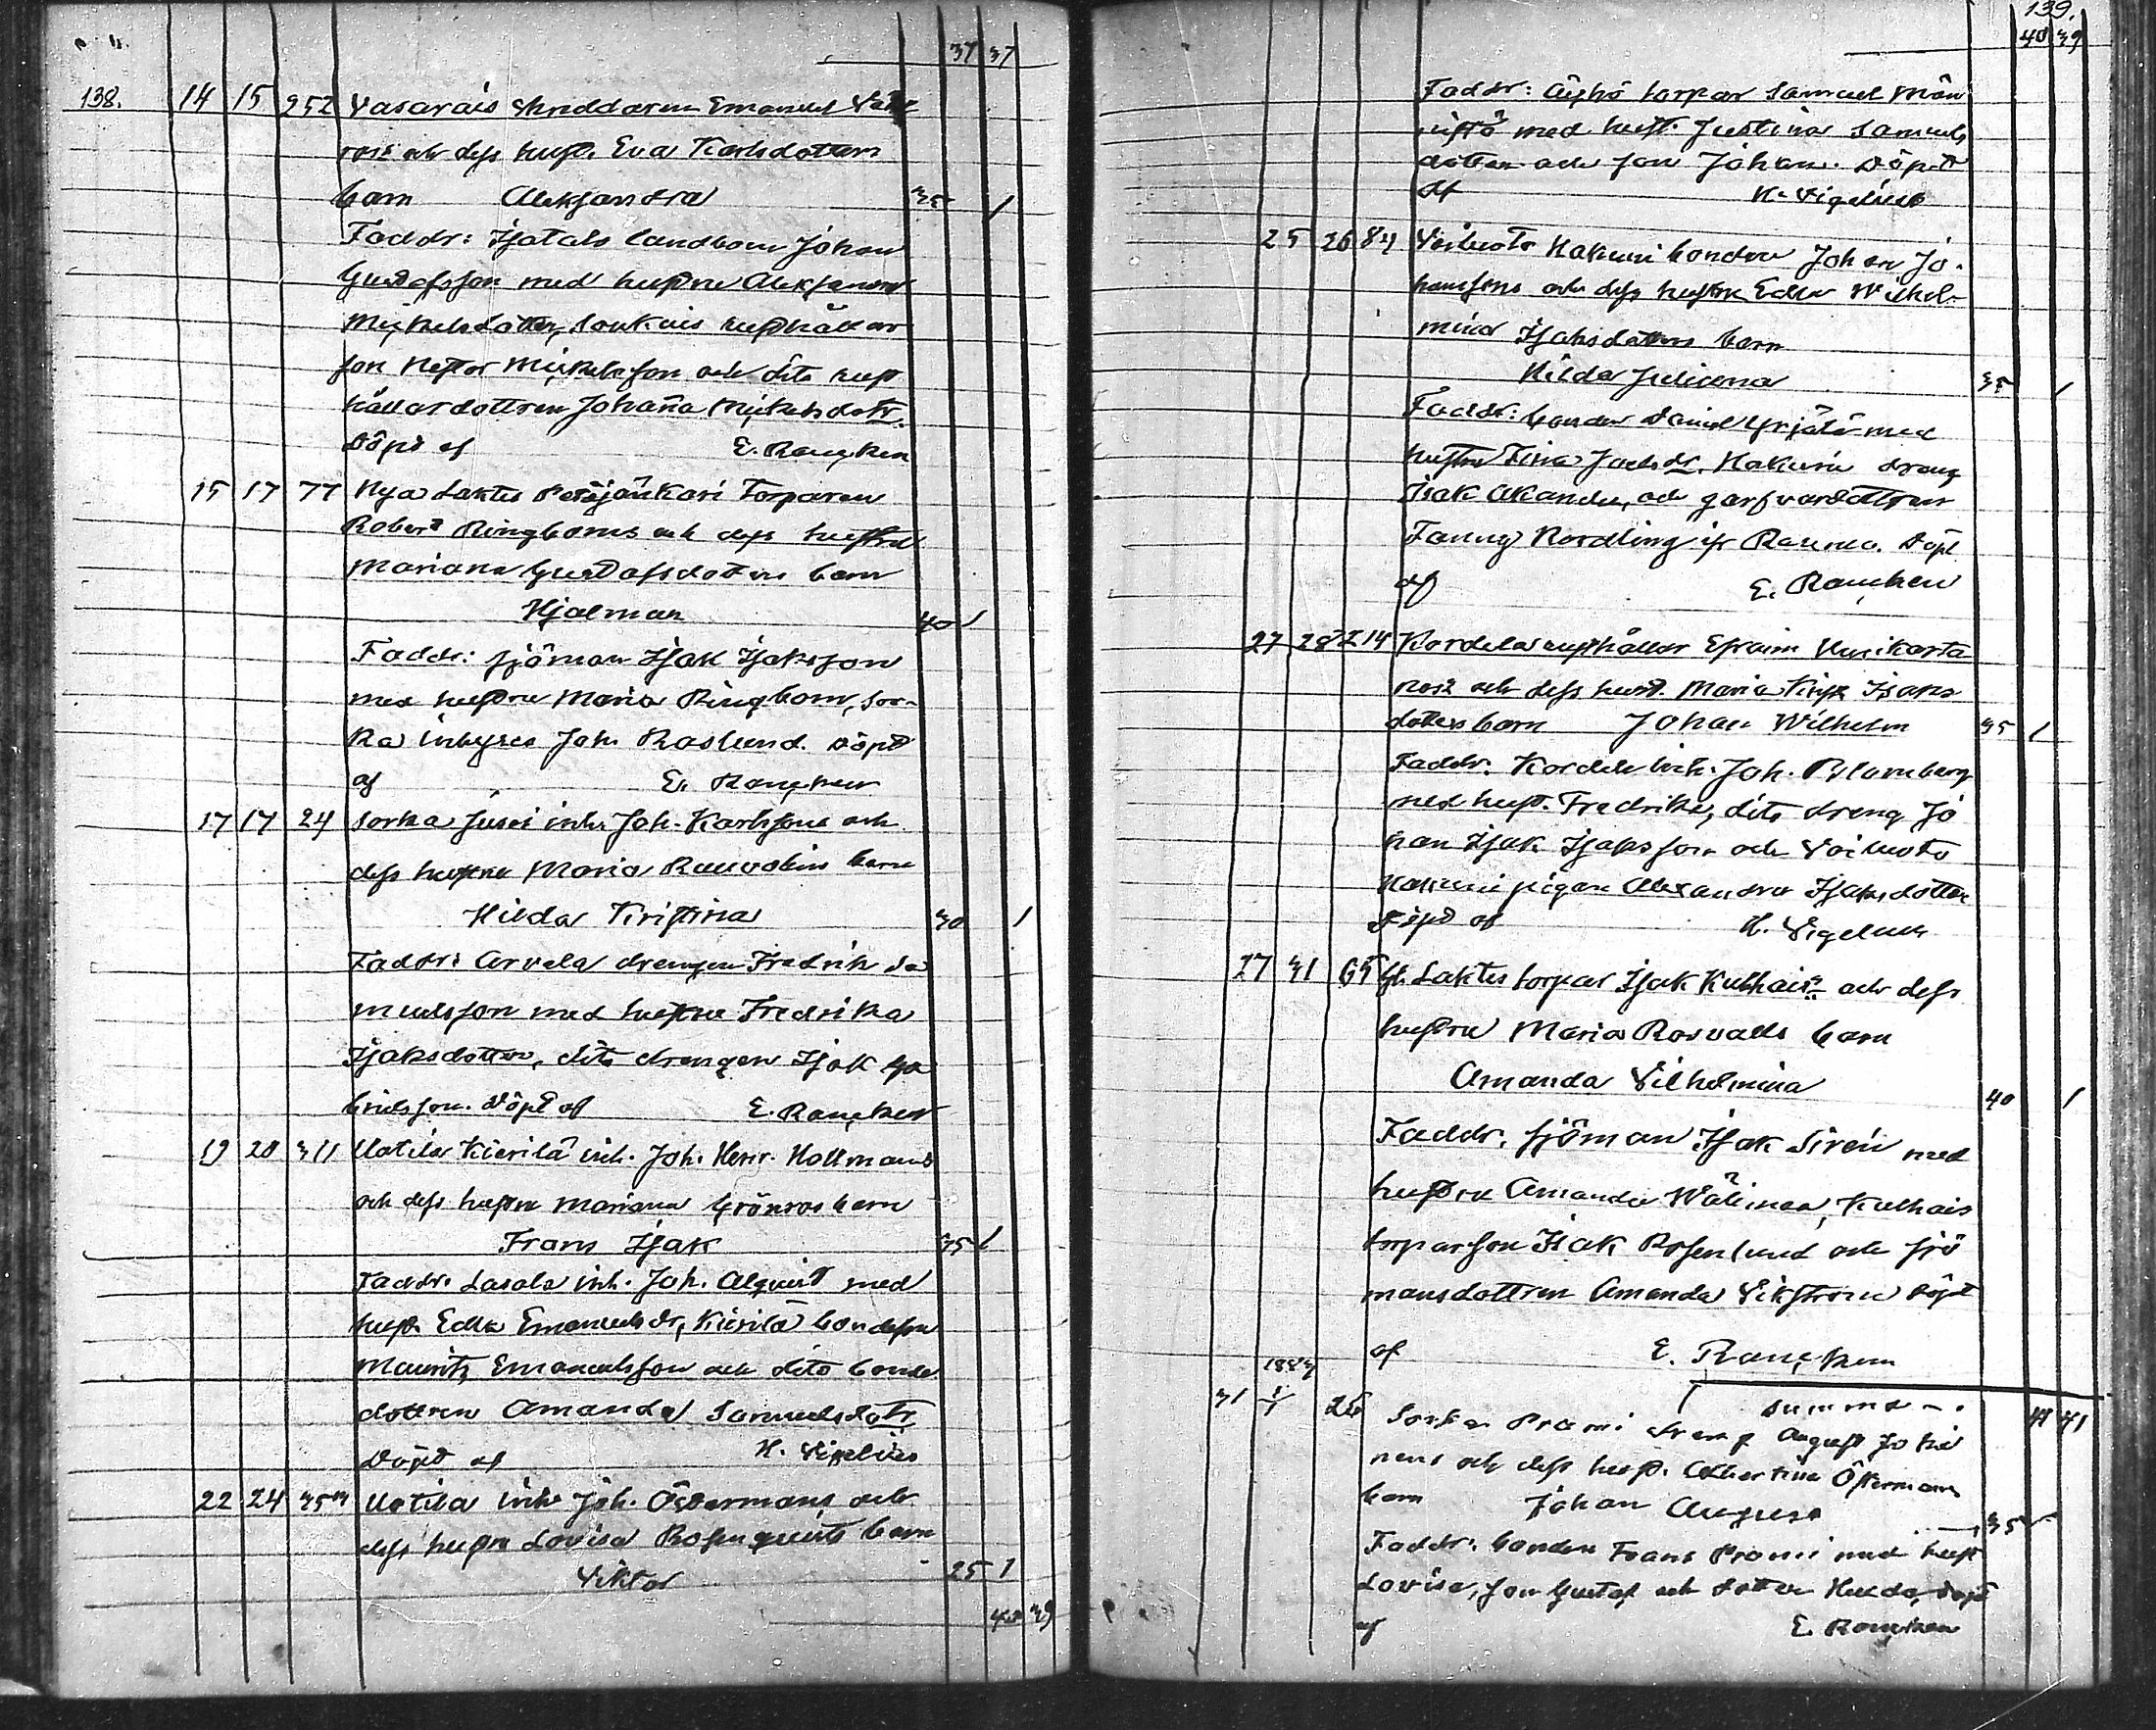 37 37
138. 14 15 252 Vasarais skreddaren Emanuel
och dess hust. Eva Karlsdotters
barn Aleksandra 35 1
Faddr: landbon Johan
Gustafsson med hustru Aleksandra
Mickelsdotter,
son Nestor Mickelsson och dito
dottren Johanna Mickelsdotr.
Döpt af E. Rancken
15 17 77 Nya Laktis Torparen
Robert Ringboms och dess hustru
Mariana Gustafsdotters barn
Hjalmar 40 1
Faddr: sjöman Isak Isaksson
med hustru Maria Ringbom, Sor-
ka inhyses Joh. Roslund. Döpt
af E. Rancken
17 17 24 Sorka Jussi inh. Joh. Karlssons och
dess hustru Maria barn
Hilda Kristina 30 1
Faddr: Arvela drengen Fredrik Sa
muelsson med hustru Fredrika
Isaksdotter, dito drengen Isak Ga
brielsson. Döpt af E. Rancken
19 20 311 Uotila Kierilä inh. Joh. Henr. Hollmans
och dess hustru Mariana Grönroos barn
Frans Isak 35 1
Faddr: Lasala inh. Joh. Alquist med
hust. Edla Emanuelsdr, Kierilä bondeson
Maurits Emanuelsson och dito bonde
dottren Amanda Samuelsdotr.
Döpt af H. Vigelius
22 24 Uotila inh. Joh. Östermans och
dess hustru Lovisa Rosenquists barn
Viktor 25 1
40 39
139.
40 39
Faddr: Äyhö torpar Samuel
med hust. Justina Samuels
dotter och son Johan. Döpt
af H. Vigelius
25 26 84 Voiluoto Hakuni bonden Johan Jo-
hanssons och dess hustru Edla Wilhel-
mina Isaksdotters barn
Hilda Juliana 35 1
Faddr: bonden Daniel Yrjälä med
hustru Fina Jacksdr. Hakuni dreng
Isak Akander, och garfvardottren
Fanny Nordling ifr Raumo. Döpt
af E. Rancken
27 28 214 Kordela Efraim
och dess hust. Maria Isaks
dotters barn Johan Wilhelm 35 1
Faddr. Kordela inh. Joh. Blomberg
med hust. Fredrika, dito dreng Jo
han Isak Isaksson och Voiluoto
Hakuni pigan Alexandra Isaksdotter
Döpt af H. Vigelius
27 31 65 G. Laktis torpar Isak Kulhais och dess
hustru Maria Rosvalls barn
Amanda Vilhelmina 40 1
Faddr. sjöman Isak Sirén med
hustru Amanda Wälimaa, Kulhais
torparson Isak Rosenlund och sjö
mansdottren Amanda Vikström Döpt
af E. Rancken
1884
Summa 41 41
31 1/1 26 Sorka Prami dreng August
nens och dess hust. Albertina Östermans
barn Johan August 35
Faddr. bonden Frans Prami med hust
Lovisa, son Gustaf och dotter Hulda, Döpt
af E. Rancken